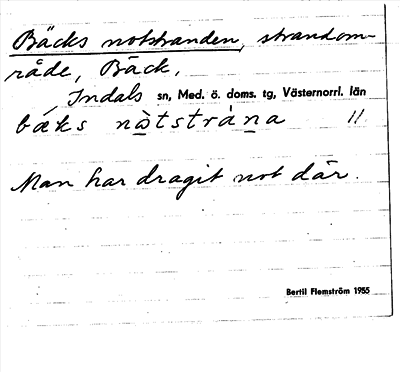 Bäcks notstranden, strandom-
råde, Bäck,
Indals sn, Med. ö. doms. tg, Västernorrl. län
bǽks nòtstrána 11
Man har dragit not där.
Bertil Flemström 1955